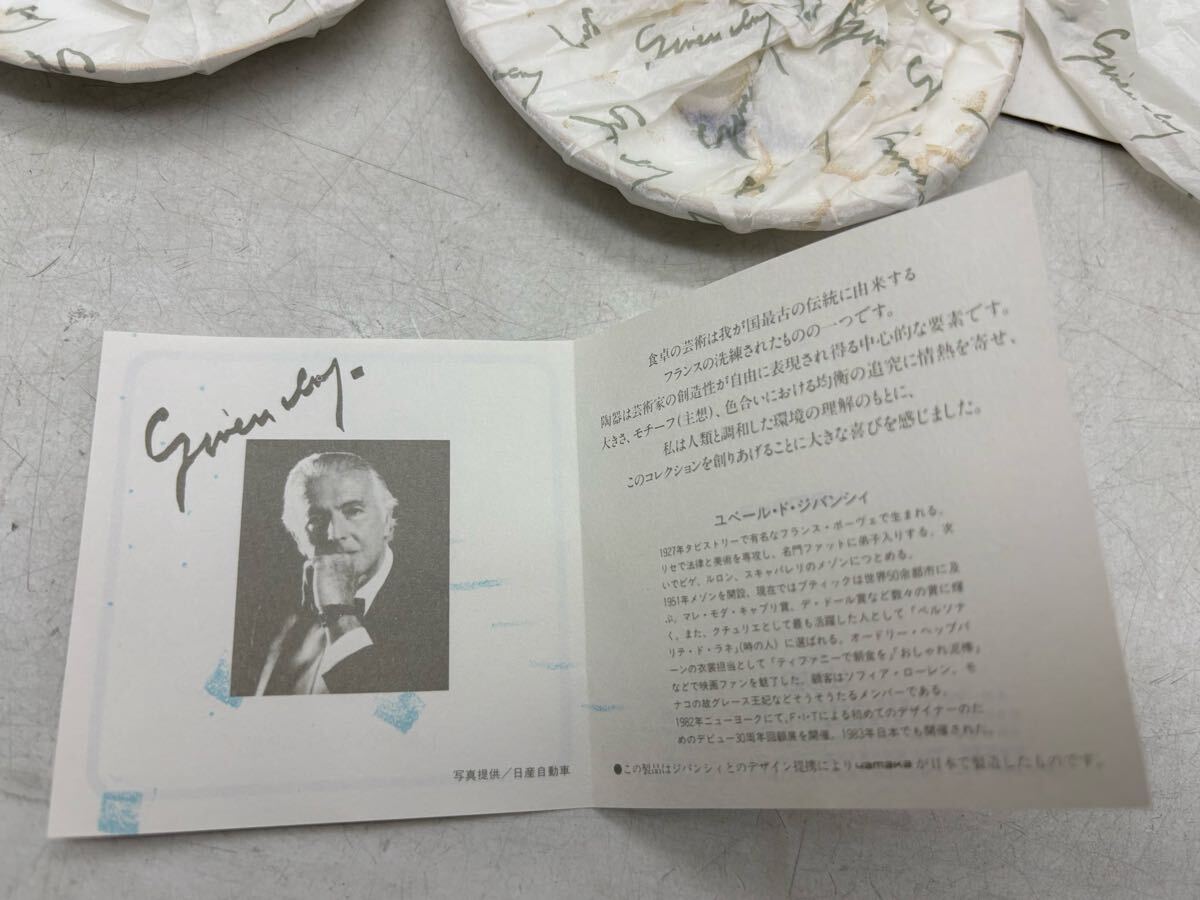 Givenchy
Givenchy
Givenchy.
写真提供/日産自動車
食卓の芸術は我が国最古の伝統に由来する
フランスの洗練されたものの一つです。
陶器は芸術家の創造性が自由に表現され得る中心的な要素です。
大きさ、モチーフ(主想)、色合いにおける均衡の追究に情熱を寄せ、
私は人類と調和した環境の理解のもとに、
このコレクションを創りあげることに大きな喜びを感じました。
ユベール・ド・ジバンシィ
1927年タピストリーで有名なフランス・ボーヴェで生まれる。
リセで法律と美術を専攻し、名門ファットに弟子入りする。次
いでピゲ、ルロン、スキャパレリのメゾンにつとめる。
1951年メゾンを開設、現在ではブティックは世界50余都市に及
ぶ。マレ・モダ・キャプリ賞、デ・ドール賞など数々の賞に輝
く。また、クチュリエとして最も活躍した人として「ペルソナ
リテ・ド・ラネ」(時の人)に選ばれる。オードリー・ヘップバ
ーンの衣裳担当として「ティファニーで朝食を」「おしゃれ泥棒」
などで映画ファンを魅了した。顧客はソフィア・ローレン、モ
ナコの故グレース王妃などそうそうたるメンバーである。
1982年ニューヨークにて、F・I・Tによる初めてのデザイナーのた
めのデビュー30周年回顧展を開催。1983年日本でも開催された。
●この製品はジバンシィとのデザイン提携によりyamakaが日本で製造したものです。